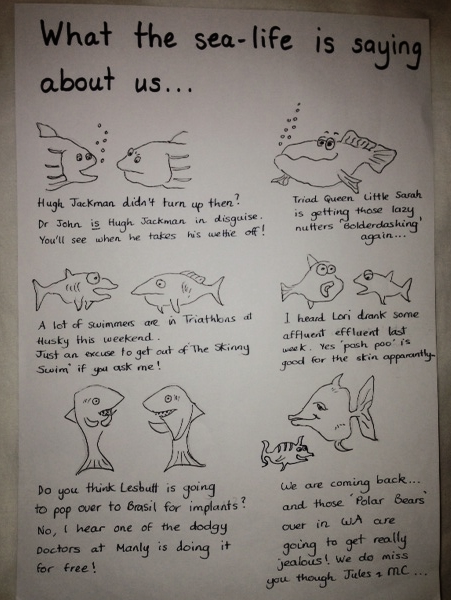 What the sea-life is saying
about us...
Hugh Jackman didn't turn up then?
Dr John is Hugh Jackman in disguise.
You'll see when he takes his wettie off!
Triad Queen Little Sarah
is getting those lazy
nutters 'Bolderdashing'
again...
A lot of swimmers are in Triathlons at
Husky this weekend..
Just an excuse to get out of 'The Skinny
Swim' if you ask me!
I heard Lori drank some
affluent effluent last
week. Yes 'posh poo' is
good for the skin apparantly
Do you think Lesbutt is going
to pop over to Brasil for implants?
No, I hear one of the dodgy
Doctors at Manly is doing it
for free!
We are coming back...
and those 'Polar Bears'
over in WA are
going to get really
jealous! We do miss
you though Jules & MC...